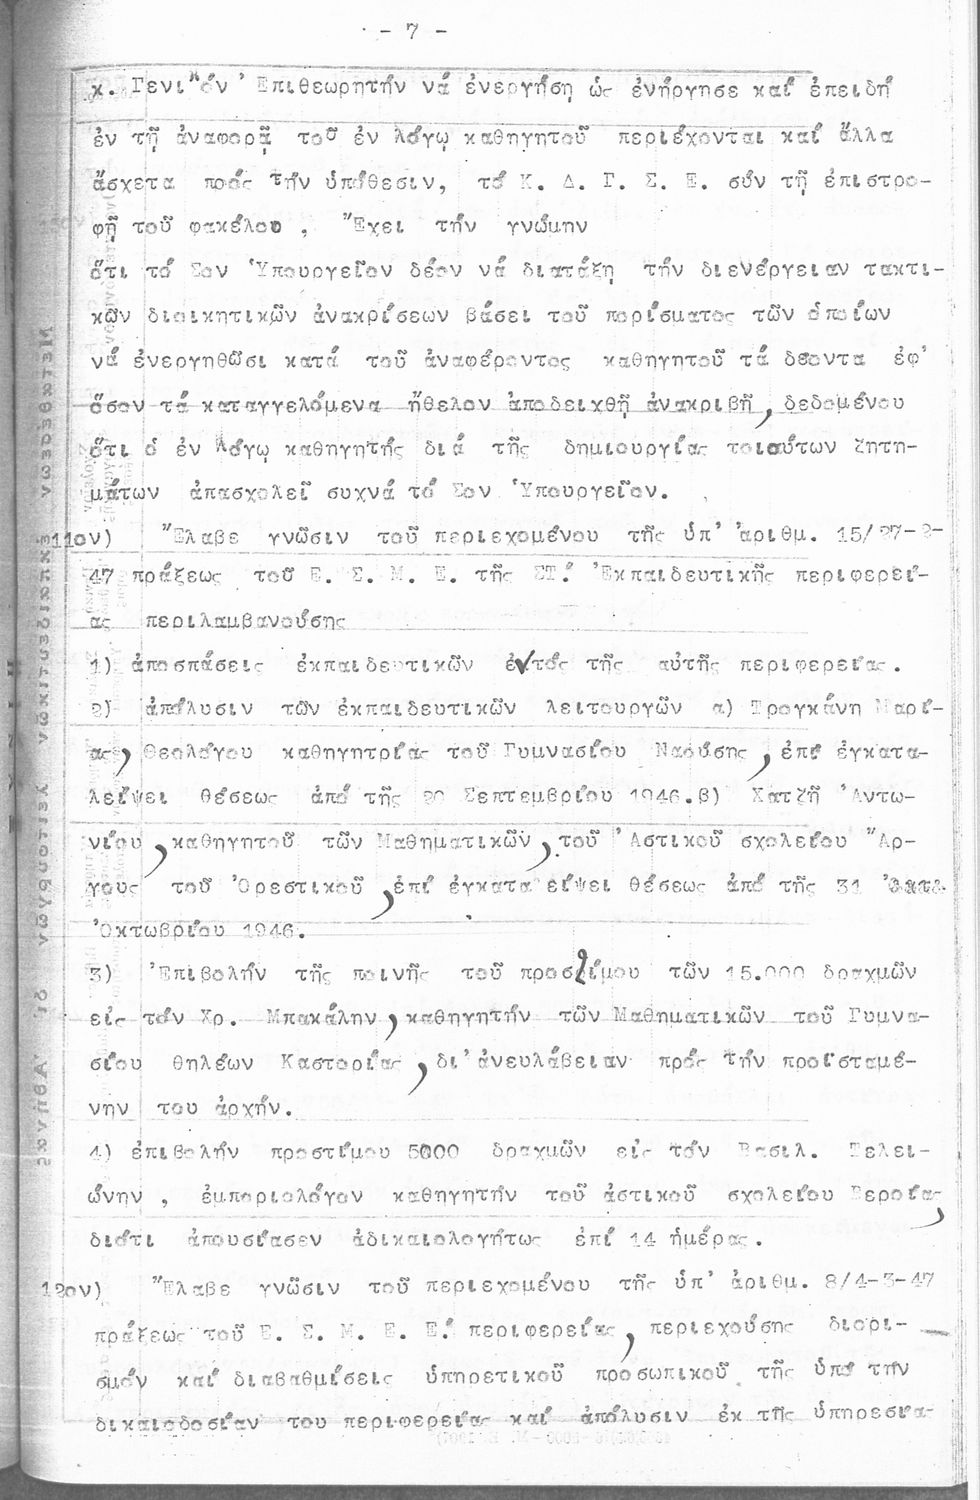 - 7 -
κ. Γενικόν Ἐπιθεωρητήν νά ἐνεργήσῃ ὡς ἐνήργησε καί ἐπειδή
ἐν τῇ ἀναφορᾷ τοῦ ἐν λόγῳ καθηγητοῦ περιέχονται καί ἄλλα
ἄσχετα πρός τήν ὑπόθεσιν, τό Κ. Δ. Γ. Σ. Ε. σύν τῇ ἐπιστρο-
φῇ τοῦ φακέλου , Ἔχει τήν γνώμην
ὅτι τό Σον Ὑπουργεῖον δέον νά διατάξῃ τήν διενέργειαν τακτι-
κῶν διοικητικῶν ἀνακρίσεων βάσει τοῦ πορίσματος τῶν ὁποίων
νά ἐνεργηθῶσι κατά τοῦ ἀναφέροντος καθηγητοῦ τά δέοντα ἐφ'
ὅσον τά καταγγελόμενα ἤθελον ἀποδειχθῆ ἀνακριβῆ, δεδομένου
ὅτι ὁ ἐν λόγῳ καθηγητής διά τῆς δημιουργίας τοιούτων ζητη-
μάτων ἀπασχολεῖ συχνά τό Σον Ὑπουργεῖον.
11ον) Ἔλαβε γνῶσιν τοῦ περιεχομένου τῆς ὑπ' ἀριθμ. 15/27-2-
47 πράξεως τοῦ Ε. Σ. Μ. Ε. τῆς ΣΤ.' Ἐκπαιδευτικῆς περιφερεί-
ας περιλαμβανούσης
1) ἀποσπάσεις ἐκπαιδευτικῶν ἐντός τῆς αὐτῆς περιφερείας.
2) ἀπόλυσιν τῶν ἐκπαιδευτικῶν λειτουργῶν α) Τρογκάνη Μαρί-
ας, Θεολόγου καθηγητρίας τοῦ Γυμνασίου Ναούσης, ἐπί ἐγκατα-
λείψει θέσεως ἀπό τῆς 20 Σεπτεμβρίου 1946.β) Χατζῆ Ἀντω-
νίου, καθηγητοῦ τῶν Μαθηματικῶν, τοῦ Ἀστικοῦ σχολείου Ἄρ-
γους τοῦ Ὀρεστικοῦ, ἐπί ἐγκατα είψει θέσεως ἀπό τῆς 31
Ὀκτωβρίου 1946.
3) Ἐπιβολήν τῆς ποινῆς τοῦ προστίμου τῶν 15.000 δραχμῶν
εἰς τόν Χρ. Μπακάλην, καθηγητήν τῶν Μαθηματικῶν τοῦ Γυμνα-
σίου θηλέων Καστορίας, δι' ἀνευλάβειαν πρός τήν προϊσταμέ-
νην του ἀρχήν.
4) ἐπιβολήν προστίμου 5000 δραχμῶν εἰς τόν Βασιλ. Τελει-
ώνην , ἐμποριολόγον καθηγητήν τοῦ ἀστικοῦ σχολείου Βεροίας,
διότι ἀπουσίασεν ἀδικαιολογήτως ἐπί 14 ἡμέρας.
12ον) Ἔλαβε γνῶσιν τοῦ περιεχομένου τῆς ὑπ' ἀριθμ. 8/4-3-47
πράξεως τοῦ Ε. Σ. Μ. Ε. Ε.' περιφερείας, περιεχούσης διορι-
σμόν καί διαβαθμίσεις ὑπηρετικοῦ προσωπικοῦ τῆς ὑπό τήν
δικαιοδοσίαν του περιφερείας καί ἀπόλυσιν ἐκ τῆς ὑπηρεσίας